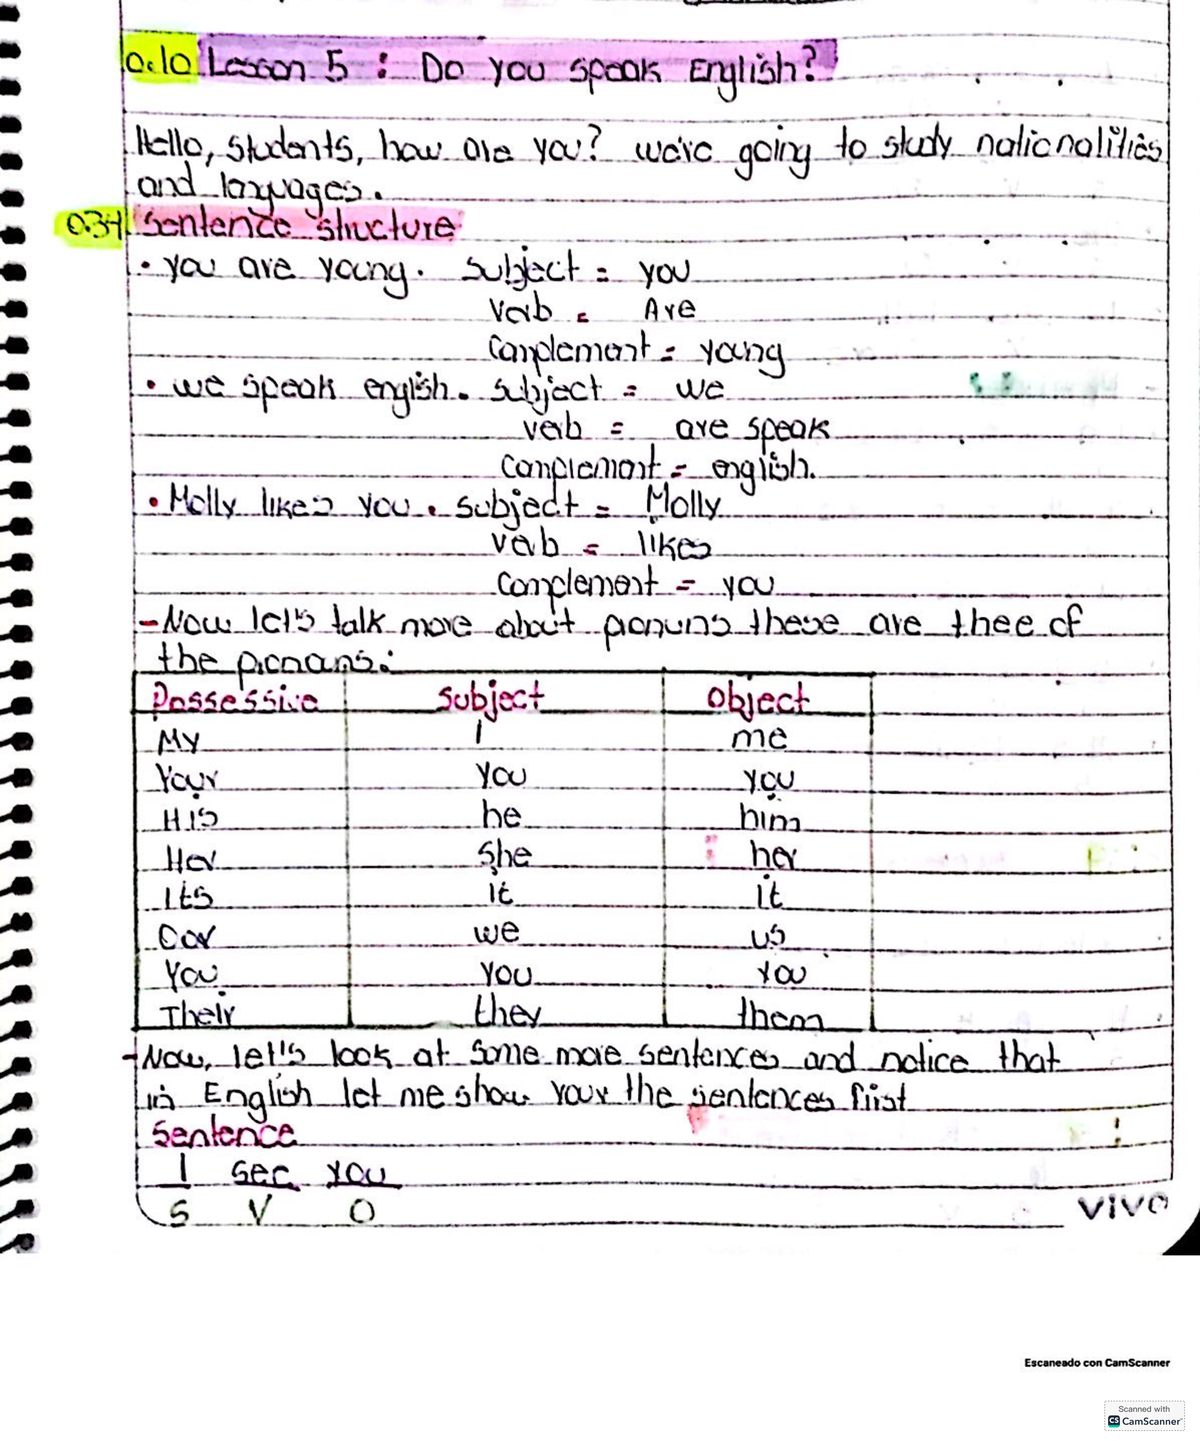 0.10 Lesson 5 : Do you speak English?
Hello, students, how are you? we're going to study nationalities
and languages.
0.34 Sentence structure
• you are young. Subject = you
Verb = Are
Complement = young
• we speak english. Subject = we
verb = are speak
Complement = english.
• Molly likes you. Subject = Molly
verb = likes
Complement = you
- Now let's talk more about pronuns these are thee of
the pronans:
Possessive Subject Object
My I me
Your you you
His he him
Her she her
Its it it
Our we us
You you you
Their they them
- Now, let's look at some more sentences and notice that
in English let me show your the sentences first
Sentence
I see you
S V O
vivo
Escaneado con CamScanner
Scanned with
CS CamScanner